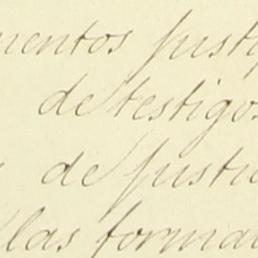 mentos justi
de testigos
de justi
las forma